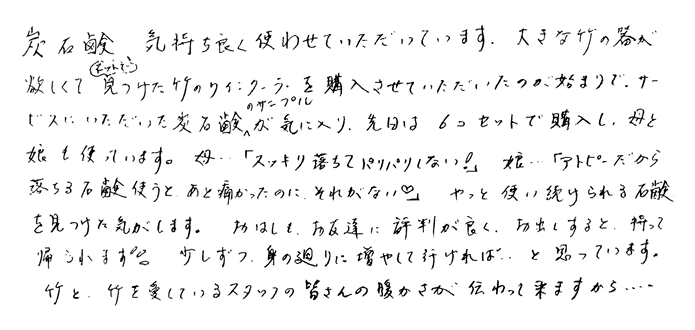 炭石鹸 気持ち良く使わせていただいています。大きな竹の器が
欲しくて(ネットで)見つけた竹のワインクーラーを購入させていただいたのが始まりで、サー
ビスにいただいた炭石鹸のサンプルが気に入り、先日は6コセットで購入し、母と
娘も使っています。母…「スッキリ落ちてパリパリしない!」娘…「アトピーだから
落ちる石鹸使うと、あと痛かったのに、それがない♡」やっと使い続けられる石鹸
を見つけた気がします。おはしも、お友達に評判が良く、お出しすると、持って
帰られます。少しずつ、身の廻りに増やして行ければ…と思っています。
竹と、竹を愛しているスタッフの皆さんの暖かさが伝わって来ますから……